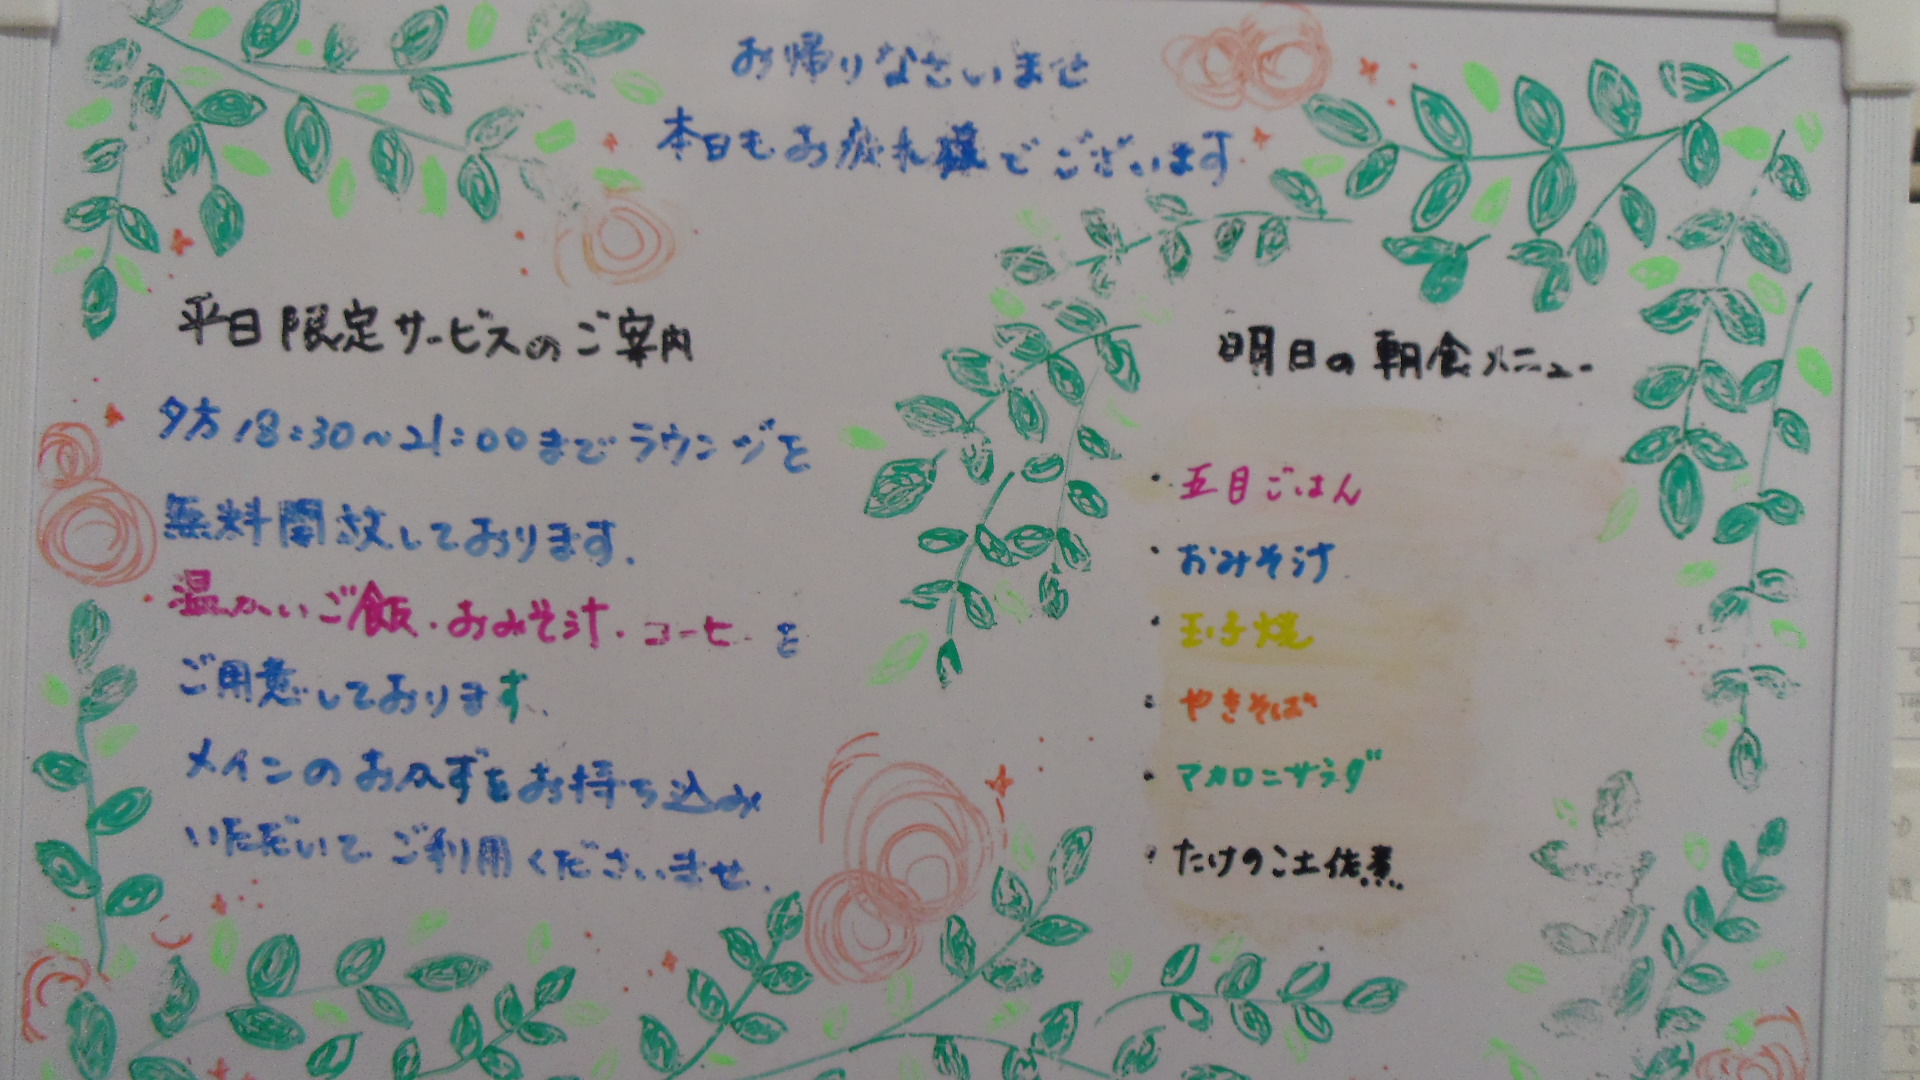 お帰りなさいませ
本日もお疲れ様でございます
平日限定サービスのご案内
夕方18:30~21:00までラウンジを
無料開放しております.
温かいご飯・おみそ汁・コーヒーを
ご用意しております.
メインのおかずをお持ち込み
いただいてご利用くださいませ.
明日の朝食メニュー
・五目ごはん
・おみそ汁
・玉子焼
・やきそば
・マカロニサラダ
・たけのこ土佐煮